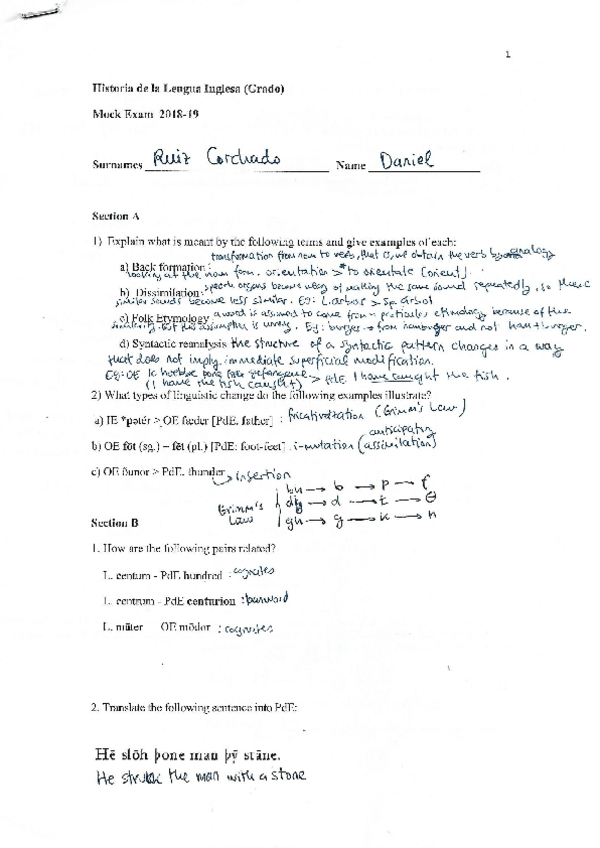 1
Historia de la Lengua Inglesa (Grado)
Mock Exam 2018-19
Surnames Ruiz Corchado Name Daniel
Section A
1) Explain what is meant by the following terms and give examples of each:
transformation from noun to verb, that is, we obtain the verb by analogy
a) Back formation:
looking at the noun form. orientation > *to orientate [orient].
b) Dissimilation: speech organs become weary of making the same sound repeatedly, so these
similar sounds become less similar. Eg: L. arbor > Sp. árbol
c) Folk Etymology a word is assumed to come from a particular etimology because of the
similarity but this assumption is wrong. Eg: burger → from hamburger and not ham + burger.
d) Syntactic reanalysis the structure of a syntactic pattern changes in a way
that does not imply immediate superficial modification.
Eg: OE Ic hæbbe þone fisc gefangene
(I have the fish caught) > PdE I have caught the fish.
2) What types of linguistic change do the following examples illustrate?
a) IE *pətér > OE fæder [PdE. father] : fricativitation (Grimm's Law)
anticipatory
b) OE fōt (sg.) – fēt (pl.) [PdE: foot-feet] : i-mutation (assimilation)
c) OE ðunor > PdE. thunder
→ insertion
Grimm's Law
bh → b → p → f
dh → d → t → θ
gh → g → k → h
Section B
1. How are the following pairs related?
L. centum - PdE hundred : cognates
L. centrum - PdE centurion : borrowed
L. māter OE mōdor : cognates
2. Translate the following sentence into PdE:
Hē slōh þone man þȳ stāne.
He struck the man with a stone